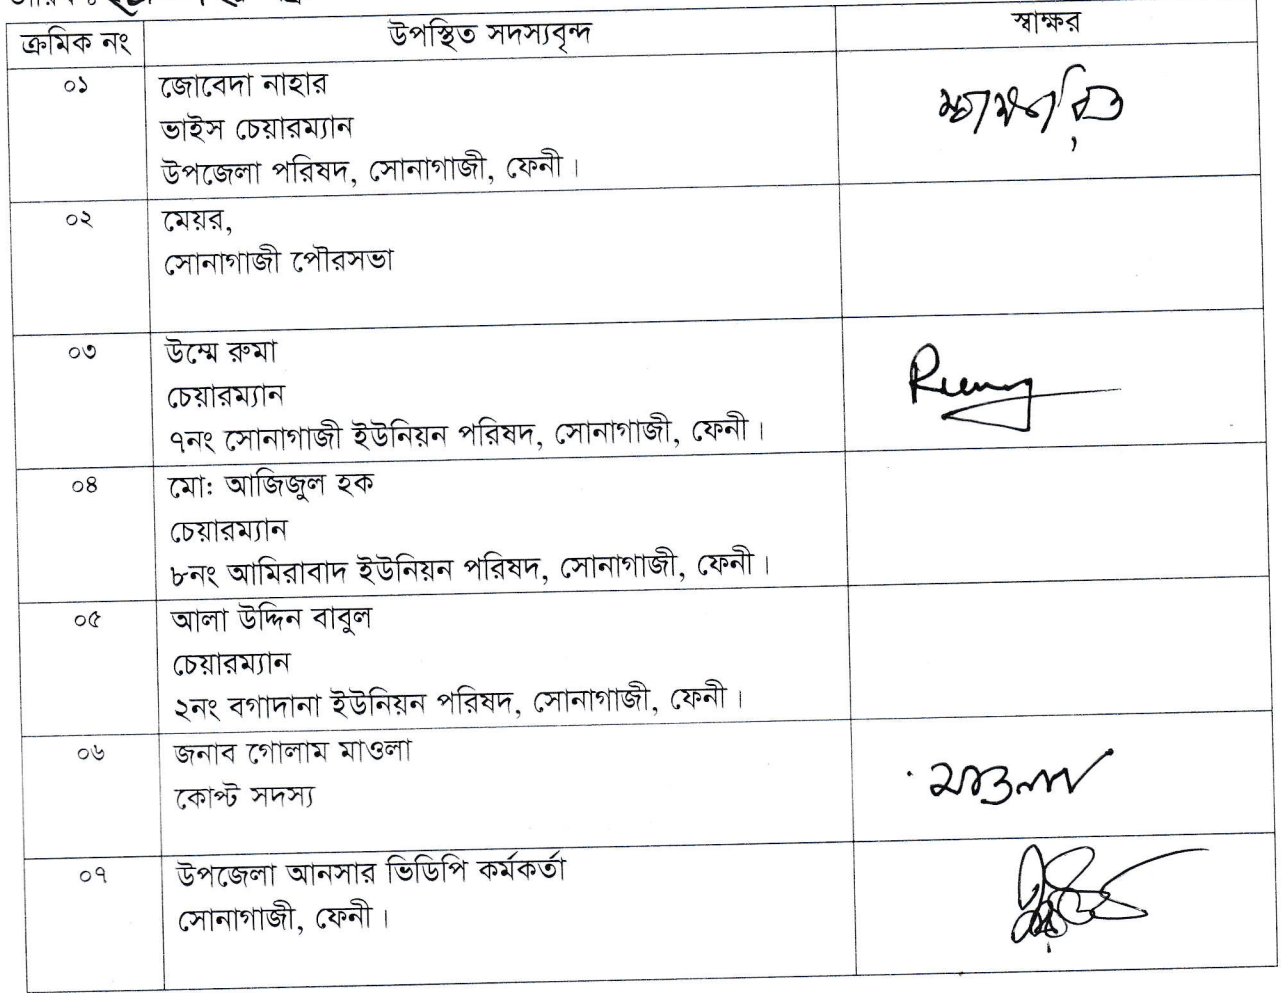 ক্রমিক নং উপস্থিত সদস্যবৃন্দ স্বাক্ষর
০১ জোবেদা নাহার
ভাইস চেয়ারম্যান
উপজেলা পরিষদ, সোনাগাজী, ফেনী।
০২ মেয়র,
সোনাগাজী পৌরসভা
০৩ উম্মে রুমা
চেয়ারম্যান
৭নং সোনাগাজী ইউনিয়ন পরিষদ, সোনাগাজী, ফেনী।
০৪ মো: আজিজুল হক
চেয়ারম্যান
৮নং আমিরাবাদ ইউনিয়ন পরিষদ, সোনাগাজী, ফেনী।
০৫ আলা উদ্দিন বাবুল
চেয়ারম্যান
২নং বগাদানা ইউনিয়ন পরিষদ, সোনাগাজী, ফেনী।
০৬ জনাব গোলাম মাওলা
কোপ্ট সদস্য
মাওলা
০৭ উপজেলা আনসার ভিডিপি কর্মকর্তা
সোনাগাজী, ফেনী।